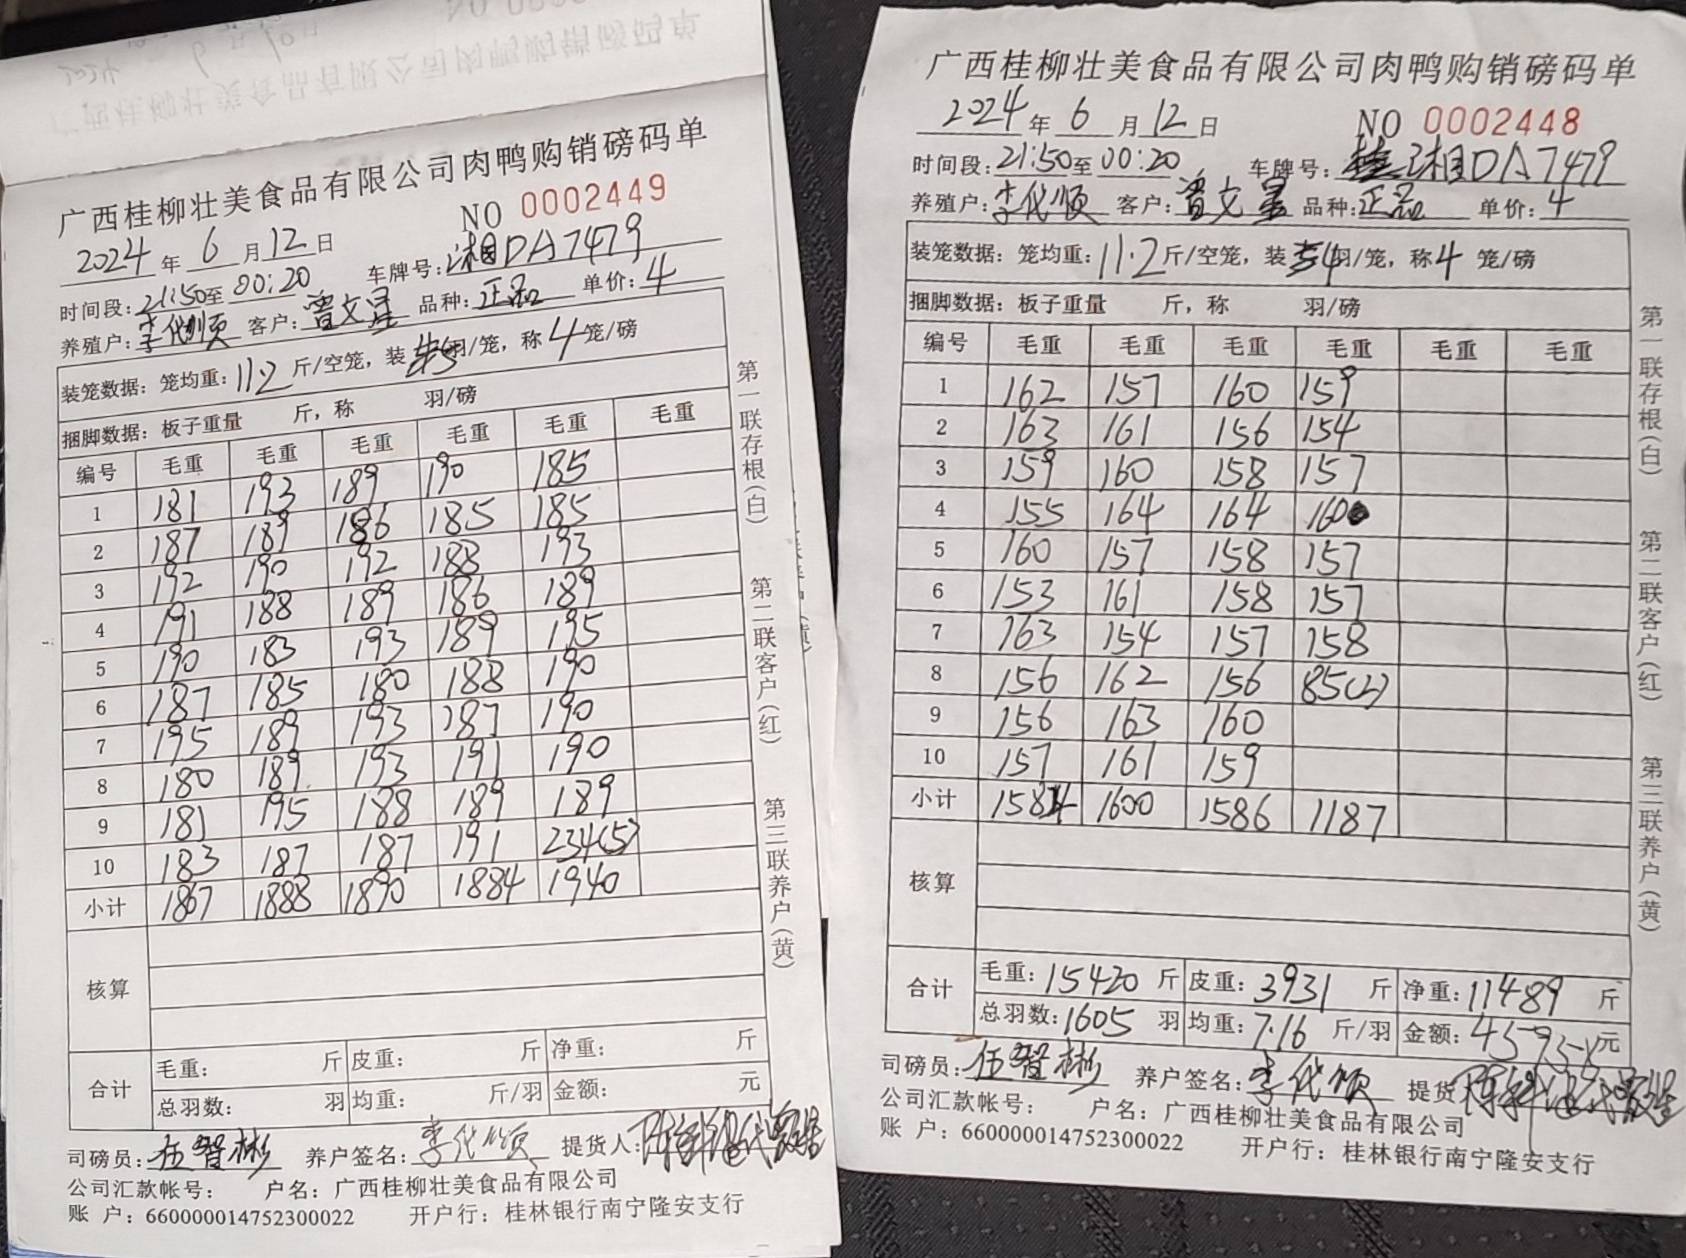 广西桂柳壮美食品有限公司肉鸭购销磅码单
NO 0002449
2024年 6月12日
时间段:21:50至00:20 车牌号:湘DA7479
养殖户:李代顺 客户:曾文星 品种:正品 单价:4
装笼数据:笼均重:11.2斤/空笼,装5羽/笼,称4笼/磅
捆脚数据:板子重量 斤,称 羽/磅
编号 毛重 毛重 毛重 毛重 毛重 毛重
1 181 193 189 190 185
2 187 189 186 185 185
3 192 190 192 188 193
4 191 188 189 186 189
5 190 183 193 189 195
6 187 185 180 188 190
7 195 189 193 187 190
8 180 189 193 191 190
9 181 195 188 189 189
10 183 187 187 191 234(5)
小计 1867 1888 1890 1884 1940
核算
合计 毛重: 斤 皮重: 斤 净重: 斤
总羽数: 羽 均重: 斤/羽 金额: 元
司磅员:伍智彬 养户签名:李代顺 提货人:
公司汇款帐号: 户名:广西桂柳壮美食品有限公司
账 户:660000014752300022 开户行:桂林银行南宁隆安支行
第一联存根(白) 第二联客户(红) 第三联养户(黄)
广西桂柳壮美食品有限公司肉鸭购销磅码单
2024年 6月12日 NO 0002448
时间段:21:50至00:20 车牌号:湘DA7479
养殖户:李代顺 客户:曾文星 品种:正品 单价:4
装笼数据:笼均重:11.2斤/空笼,装4羽/笼,称4笼/磅
捆脚数据:板子重量 斤,称 羽/磅
编号 毛重 毛重 毛重 毛重 毛重 毛重
1 162 157 160 159
2 163 161 156 154
3 159 160 158 157
4 155 164 164 160
5 160 157 158 157
6 153 161 158 157
7 163 154 157 158
8 156 162 156 85(2)
9 156 163 160
10 157 161 159
小计 1584 1600 1586 1187
核算
合计 毛重:15420斤 皮重:3931斤 净重:11489斤
总羽数:1605羽 均重:7.16斤/羽 金额:元
司磅员:伍智彬 养户签名:李代顺 提货
公司汇款帐号: 户名:广西桂柳壮美食品有限公司
账 户:660000014752300022 开户行:桂林银行南宁隆安支行
第一联存根(白) 第二联客户(红) 第三联养户(黄)